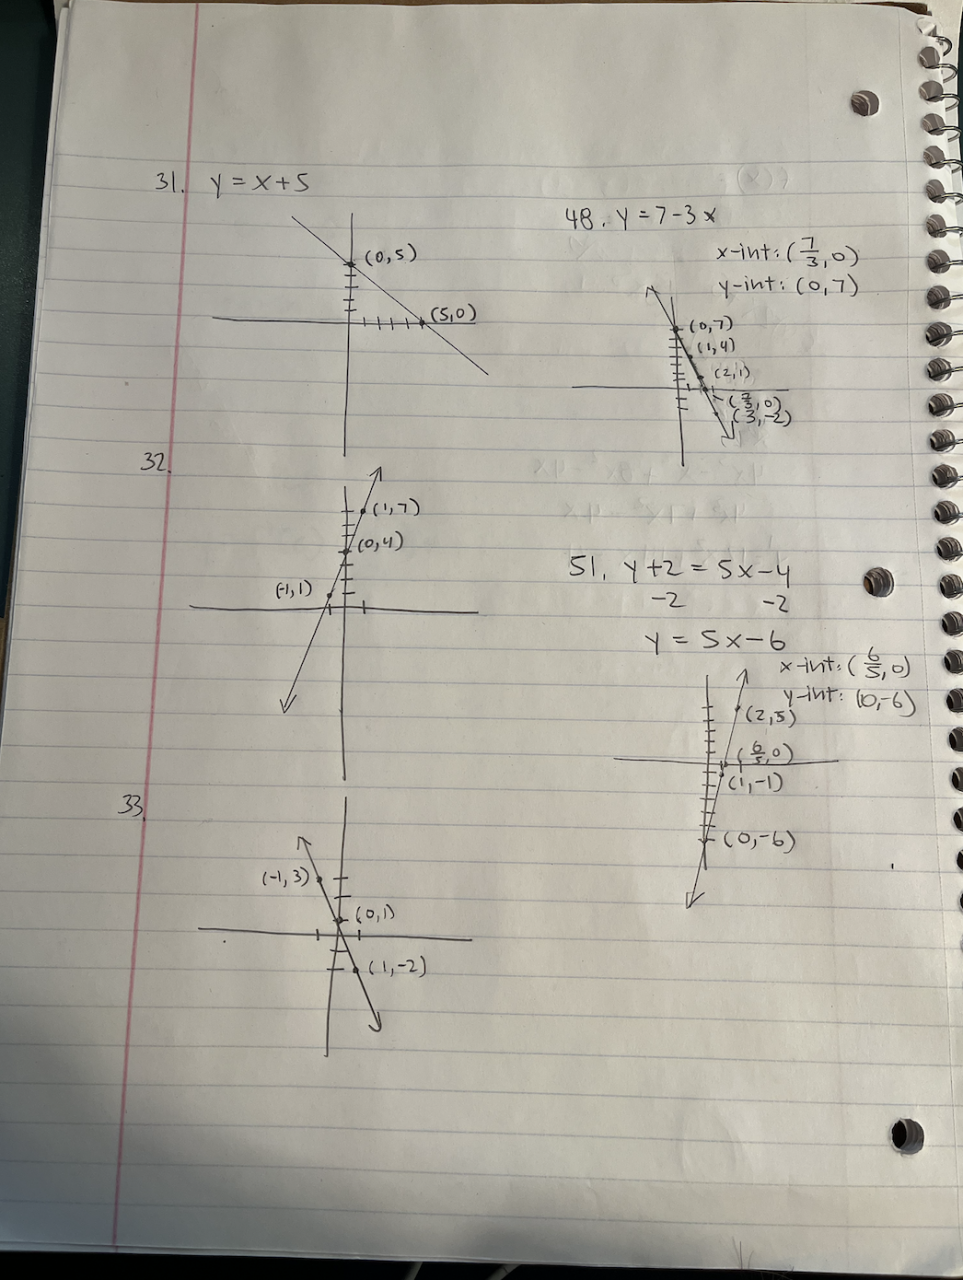 31. y = x + 5
(0,5)
(5,0)
32.
(1,7)
(0,4)
(-1,1)
33.
(-1,3)
(0,1)
(1,-2)
48. y = 7 - 3x
x-int: (7/3, 0)
y-int: (0,7)
(0,7)
(1,4)
(2,1)
(7/3, 0)
(3,-2)
51. y + 2 = 5x - 4
-2 -2
y = 5x - 6
x-int: (6/5, 0)
y-int: (0,-6)
(2,5)
(6/5, 0)
(1,-1)
(0,-6)